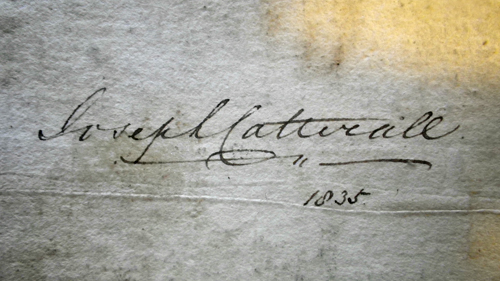 Joseph Catterall
1835